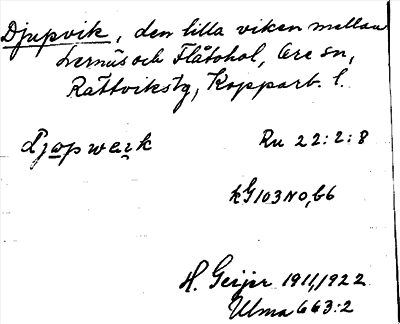 Djupvik, den lilla viken mellan
Lernäs och Flåtohol, Ore sn,
Rättvikstg, Kopparb. l.
djupwek Ru 22:2:8
KG 103 NO, 66
H. Geijer 1911, 1922
Ulma 663:2